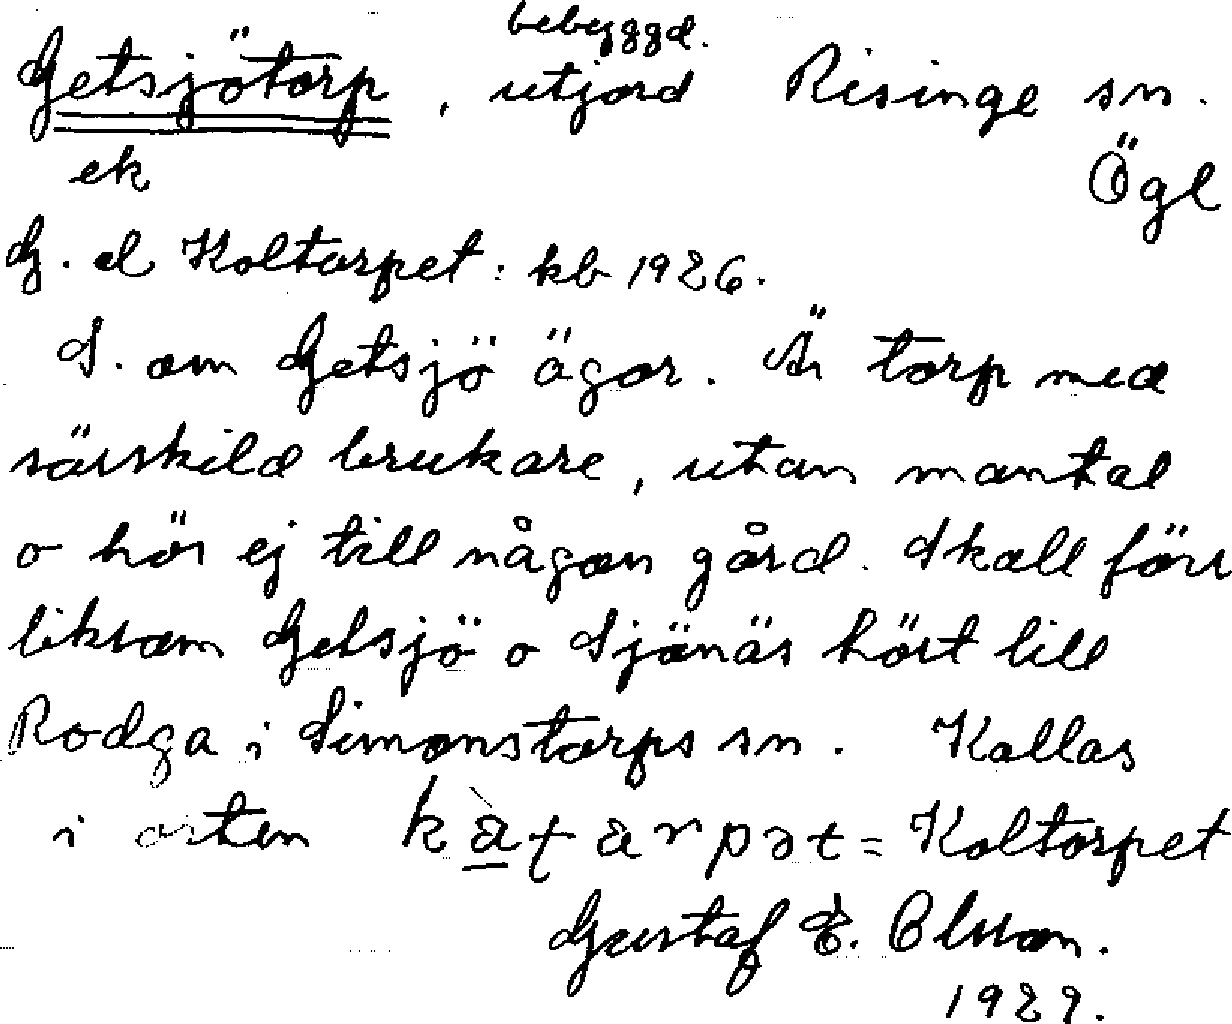 bebyggd.
Getsjötorp, utjord Risinge sn.
ek Ögl
G. el Koltorpet: kb 1926.
S. om Getsjö ägor. Är torp med
särskild brukare, utan mantal
o hör ej till någon gård. Skall förr
liksom Getsjö o Sjönäs hört till
Rodga i Simonstorps sn. Kallas
i orten = Koltorpet
Gustaf E. Olsson.
1929.